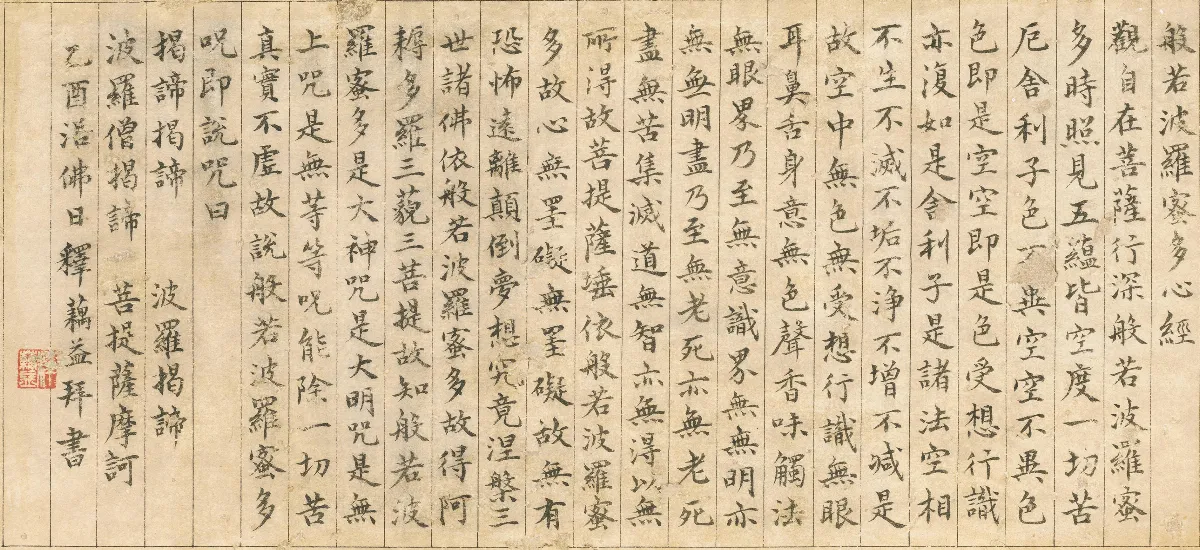 般若波羅蜜多心經
觀自在菩薩行深般若波羅蜜
多時照見五蘊皆空度一切苦
厄舍利子色不異空空不異色
色即是空空即是色受想行識
亦復如是舍利子是諸法空相
不生不滅不垢不淨不增不減是
故空中無色無受想行識無眼
耳鼻舌身意無色聲香味觸法
無眼界乃至無意識界無無明亦
無無明盡乃至無老死亦無老死
盡無苦集滅道無智亦無得以無
所得故菩提薩埵依般若波羅蜜
多故心無罣礙無罣礙故無有
恐怖遠離顛倒夢想究竟涅槃三
世諸佛依般若波羅蜜多故得阿
耨多羅三藐三菩提故知般若波
羅蜜多是大神咒是大明咒是無
上咒是無等等咒能除一切苦
真實不虛故說般若波羅蜜多
呪即說咒曰
揭諦揭諦 波羅揭諦
波羅僧揭諦 菩提薩摩訶
乙酉浴佛日釋藕益拜書